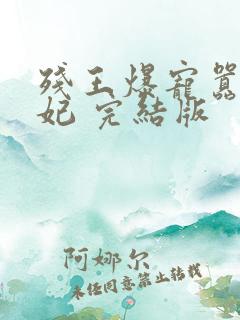 残王爆宠嚣
妃 完结版
阿娜尔
未经同意禁止转载